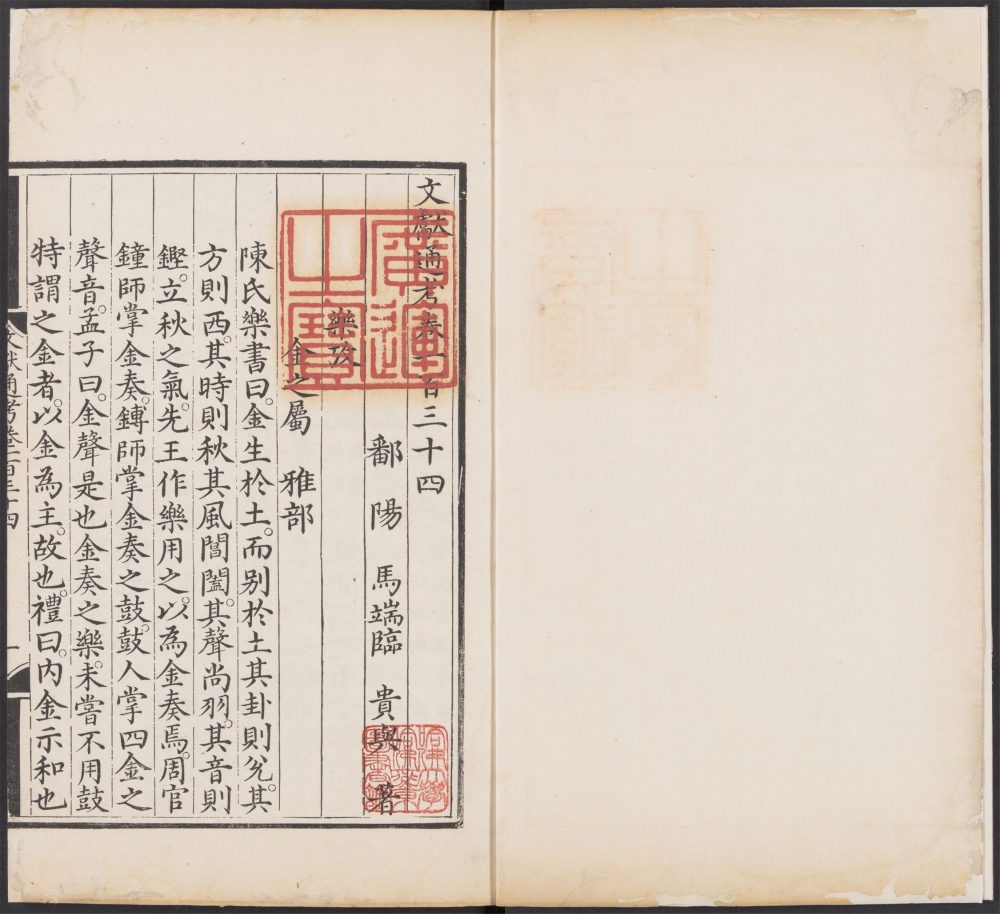 文獻通考卷一百三十四
鄱陽馬端臨貴與著
樂攷
金之屬 雅部
陳氏樂書曰。金生於土。而别於土其卦則兊。其
方則西。其時則秋其風閶闔。其聲尚羽。其音則
鏗。立秋之氣先。王作樂用之。以為金奏焉。周官
鐘師掌金奏。鎛師掌金奏之鼓。鼓人掌四金之
聲音。孟子曰。金聲是也金奏之樂。未嘗不用鼓
特謂之金者。以金為主。故也。禮曰。内金示和也
文獻通考卷一百三十四
一
廣運之寶